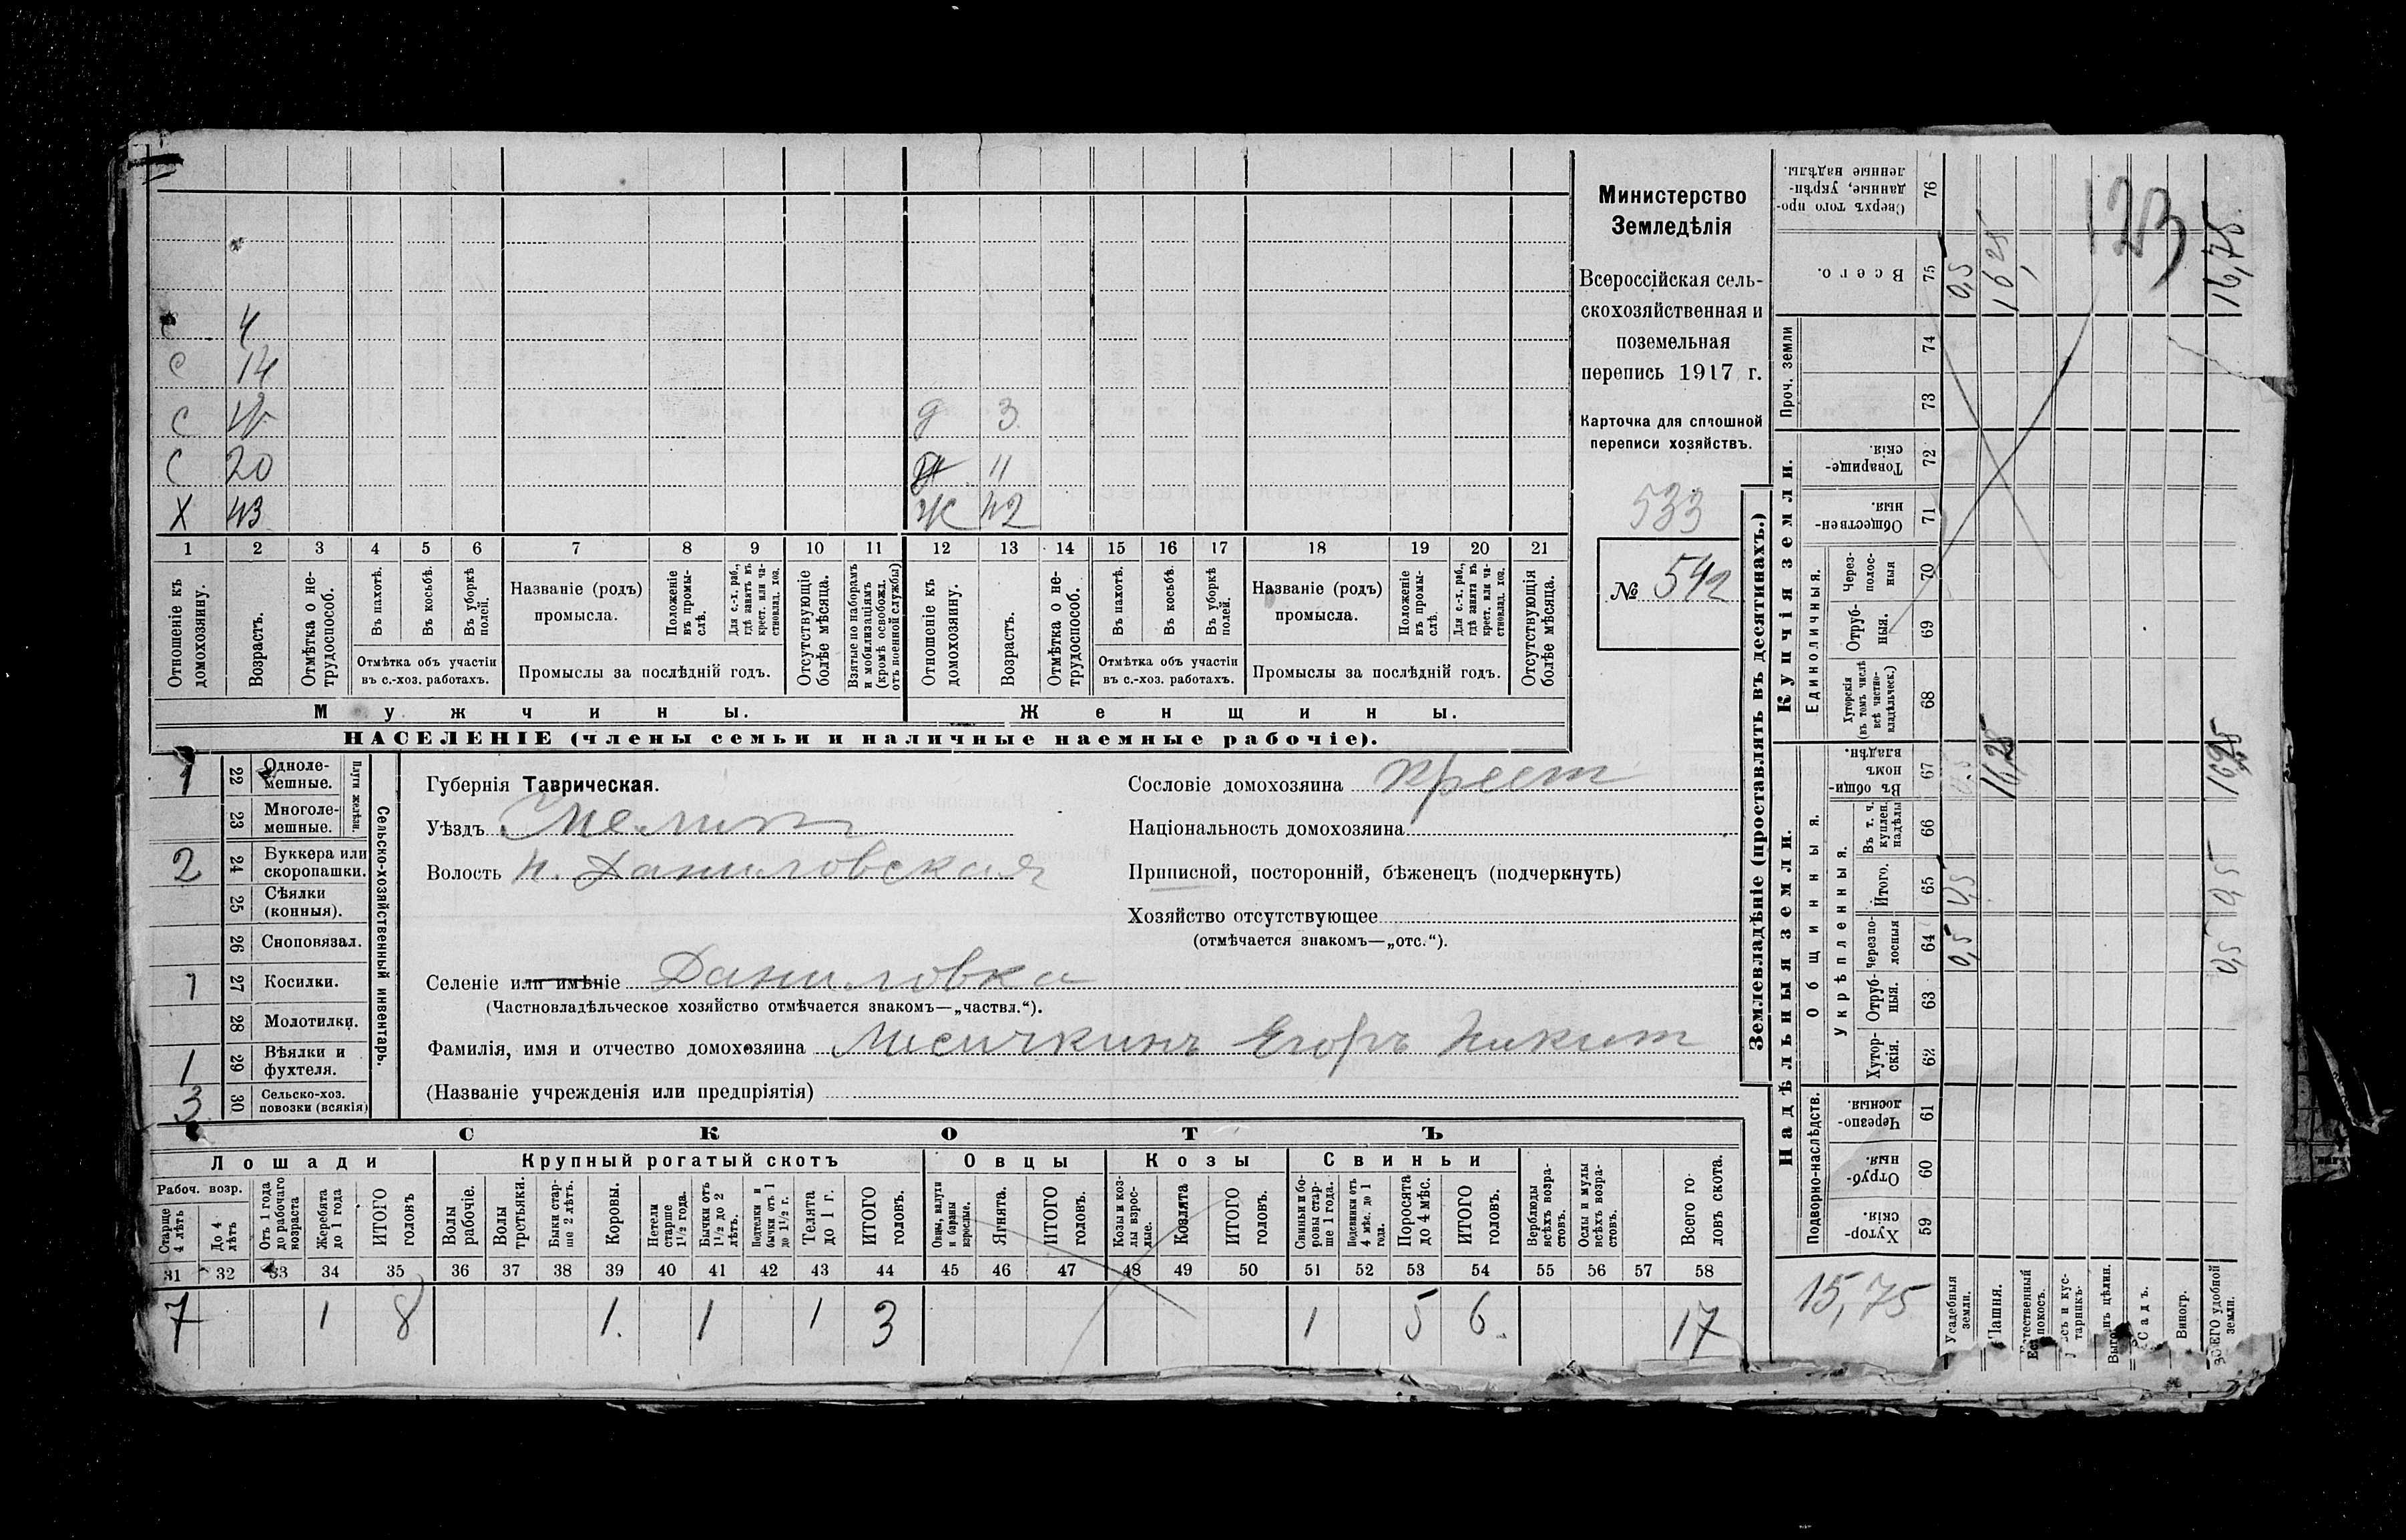 Министерство
Земледѣлія
Всероссійская сель-
скохозяйственная и
поземельная
перепись 1917 г.
Карточка для сплошной
переписи хозяйствъ.
533
№ 542
С 4
С 14
С
С 20
Х 43
д 3
д 11
Ж 42
1 2 3 4 5 6 7 8 9 10 11 12 13 14 15 16 17 18 19 20 21
Отношеніе къ домохозяину.
Возрастъ.
Отмѣтка о не-трудоспособ.
Въ пахотѣ.
Въ косьбѣ.
Въ уборкѣ полей.
Отмѣтка объ участіи
въ с.-хоз. работахъ.
Названіе (родъ)
промысла.
Положеніе въ промы-слѣ.
Для с.-х. раб., гдѣ занятъ въ крест. или ча-стновлад. хоз.
Промыслы за послѣдній годъ.
Отсутствующіе болѣе мѣсяца.
Взятые по наборамъ и мобилизаціямъ (кромѣ освобожд. отъ военной службы)
Отношеніе къ домохозяину.
Возрастъ.
Отмѣтка о не-трудоспособ.
Въ пахотѣ.
Въ косьбѣ.
Въ уборкѣ полей.
Отмѣтка объ участіи
въ с.-хоз. работахъ.
Названіе (родъ)
промысла.
Положеніе въ промы-слѣ.
Для с.-х. раб., гдѣ занята въ крест. или ча-стновлад. хоз.
Промыслы за послѣдній годъ.
Отсутствующія болѣе мѣсяца.
Мужчины.
Женщины.
НАСЕЛЕНІЕ (члены семьи и наличные наемные рабочіе).
1 22 Одноле-мешные.
23 Многоле-мешные.
Плуги желѣзн.
2 24 Буккера или скоропашки.
25 Сѣялки (конныя).
26 Сноповязал.
1 27 Косилки.
28 Молотилки.
1 29 Вѣялки и фухтеля.
3 30 Сельско-хоз. повозки (всякія)
Сельско-хозяйственный инвентарь.
Губернія Таврическая.
Уѣздъ
Волость Н. Даниловская
Селеніе или имѣніе Даниловка
(Частновладѣльческое хозяйство отмѣчается знакомъ—„частвл.“).
Фамилія, имя и отчество домохозяина Лисичкинъ Егоръ Никит
(Названіе учрежденія или предпріятія)
Сословіе домохозяина крест
Національность домохозяина
Приписной, посторонній, бѣженецъ (подчеркнуть)
Хозяйство отсутствующее
(отмѣчается знакомъ—„отс.“).
СКОТЪ
Лошади
Крупный рогатый скотъ
Овцы
Козы
Свиньи
Рабоч. возр.
Старше 4 лѣтъ
До 4 лѣтъ
Отъ 1 года до рабочаго возраста
Жеребята до 1 года
ИТОГО головъ
Волы рабочіе.
Волы третьяки.
Быки стар-ше 2 лѣтъ.
Коровы.
Нетели старше 1½ года.
Бычки отъ 1½ до 2 лѣтъ.
Подтелки и бычки отъ 1 до 1½ г.
Телята до 1 г.
ИТОГО головъ.
Овцы, валухи и бараны взрослые.
Ягнята.
ИТОГО головъ.
Козы и коз-лы взрос-лые.
Козлята
ИТОГО головъ.
Свиньи и бо-ровы стар-ше 1 года.
Подсвинки отъ 4 мѣс. до 1 года.
Поросята до 4 мѣс.
ИТОГО головъ.
Верблюды всѣхъ возра-стовъ.
Ослы и мулы всѣхъ возра-стовъ.
Всего го-ловъ скота.
31 32 33 34 35 36 37 38 39 40 41 42 43 44 45 46 47 48 49 50 51 52 53 54 55 56 57 58
7 1 8 1. 1 1 3 1 5 6. 17
Землевладѣніе (проставлять въ десятинахъ.)
Купчія земли.
Надѣльныя земли.
Сверхъ того про-данные, укрѣп-ленные надѣлы. 76
Всего. 75
Проч. земли
74
73
Товарище-скія. 72
Обществен-ныя. 71
Единоличныя.
Через-полос-ныя 70
Отруб-ныя. 69
Хуторскія (въ томъ числѣ всѣ частно-владѣльческ.) 68
Общинныя.
Въ общи-номъ владѣн. 67
Укрѣпленныя.
Въ т. ч. куплен. надѣлы 66
Итого. 65
Черезпо-лосныя 64
Отруб-ныя. 63
Хутор-скія. 62
Подворно-наслѣдств.
Черезпо-лосныя. 61
Отруб-ныя. 60
Хутор-скія. 59
15,75
Усадебныя земли.
Пашня.
Естественный покосъ.
Садъ.
Виногр.
удобной земли.
0,5
16,25
123
16,75
16,25
16,25
0,5
0,5
0,5
0,5